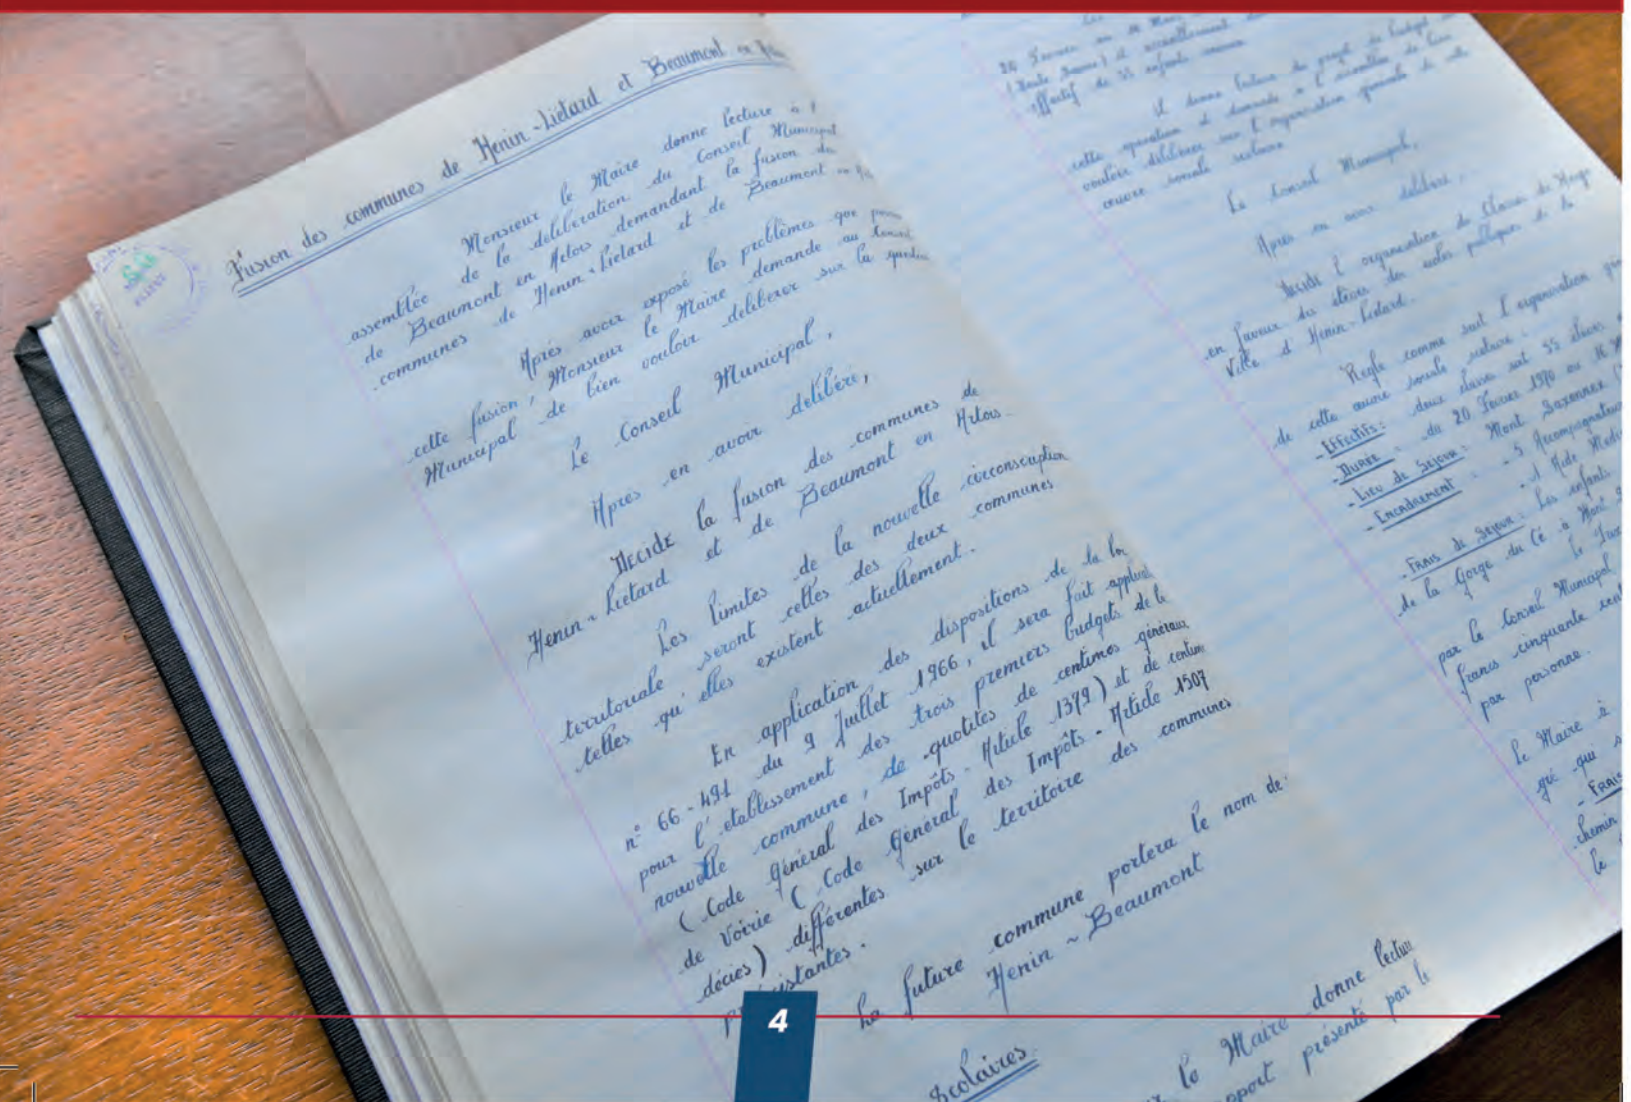 Fusion des communes de Henin-Liétard et Beaumont en
Monsieur le Maire donne lecture à l'
assemblée de la délibération du Conseil Municipal
de Beaumont en Artois demandant la fusion des
communes de Henin-Liétard et de Beaumont en
Après avoir exposé les problèmes que
cette fusion, Monsieur le Maire demande au Conseil
Municipal de bien vouloir délibérer sur la question
Le Conseil Municipal,
Après en avoir délibéré,
DECIDE la fusion des communes de
Henin-Liétard et de Beaumont en Artois.
Les limites de la nouvelle circonscription
territoriale seront celles des deux communes
telles qu'elles existent actuellement.
En application des dispositions de la loi
n° 66-491 du 9 Juillet 1966, il sera fait
pour l'établissement des trois premiers budgets de la
nouvelle commune, de quotités de centimes généraux
(Code Général des Impôts - Article 1379) et de
de voirie (Code Général des Impôts - Article 1507
décies) différentes sur le territoire des communes
La future commune portera le nom de:
Henin-Beaumont
4
Scolaires.
le Maire donne lecture
présenté par le
effectif de 55 enfants
Il donne lecture du projet de budget
cette opération et demande à l'assemblée de bien
vouloir délibérer sur l'organisation générale de cette
œuvre sociale scolaire
Le Conseil Municipal,
Après en avoir délibéré,
DECIDE l'organisation de Classes de Neige
en faveur des élèves des écoles publiques de la
Ville d'Henin-Liétard.
Règle comme suit l'organisation
de cette œuvre sociale scolaire:
- EFFECTIFS: deux classes soit 55 élèves
- DURÉE: du 20 Février 1970 au 16
- LIEU de SEJOUR: Mont Saxonnex
- ENCADREMENT: - 5 Accompagnateurs
- 1 Aide
- FRAIS de SEJOUR: Les enfants
de la Gorge du Cé à Mont
par le Conseil Municipal
francs cinquante
par personne.
le Maire à
gré qui
- FRAIS
chemin
le